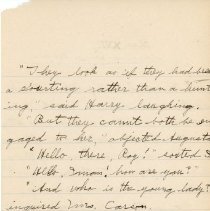 "They look as if they had been
a courting rather than a hunt
ing," said Harry laughing.
"But they can't both be en
gaged to her," objected August
"Hello there, Roy!" 
"Hello, how are you?"
"And who is the young lady?"
inquired Mrs. Carson.